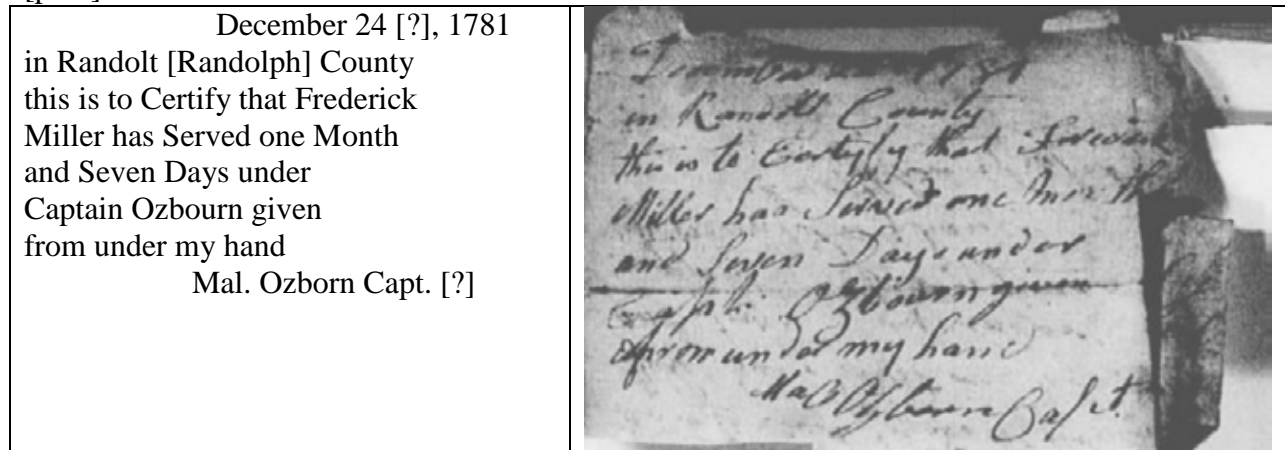 December 24 [?], 1781
in Randolt [Randolph] County
this is to Certify that Frederick
Miller has Served one Month
and Seven Days under
Captain Ozbourn given
from under my hand
Mal. Ozborn Capt. [?]
1781
in Randolt County
this is to Certyfy that
Miller has Served one Month
and Seven Days under
Capt. Ozbourn given
from under my hand
Ozborn Capt.